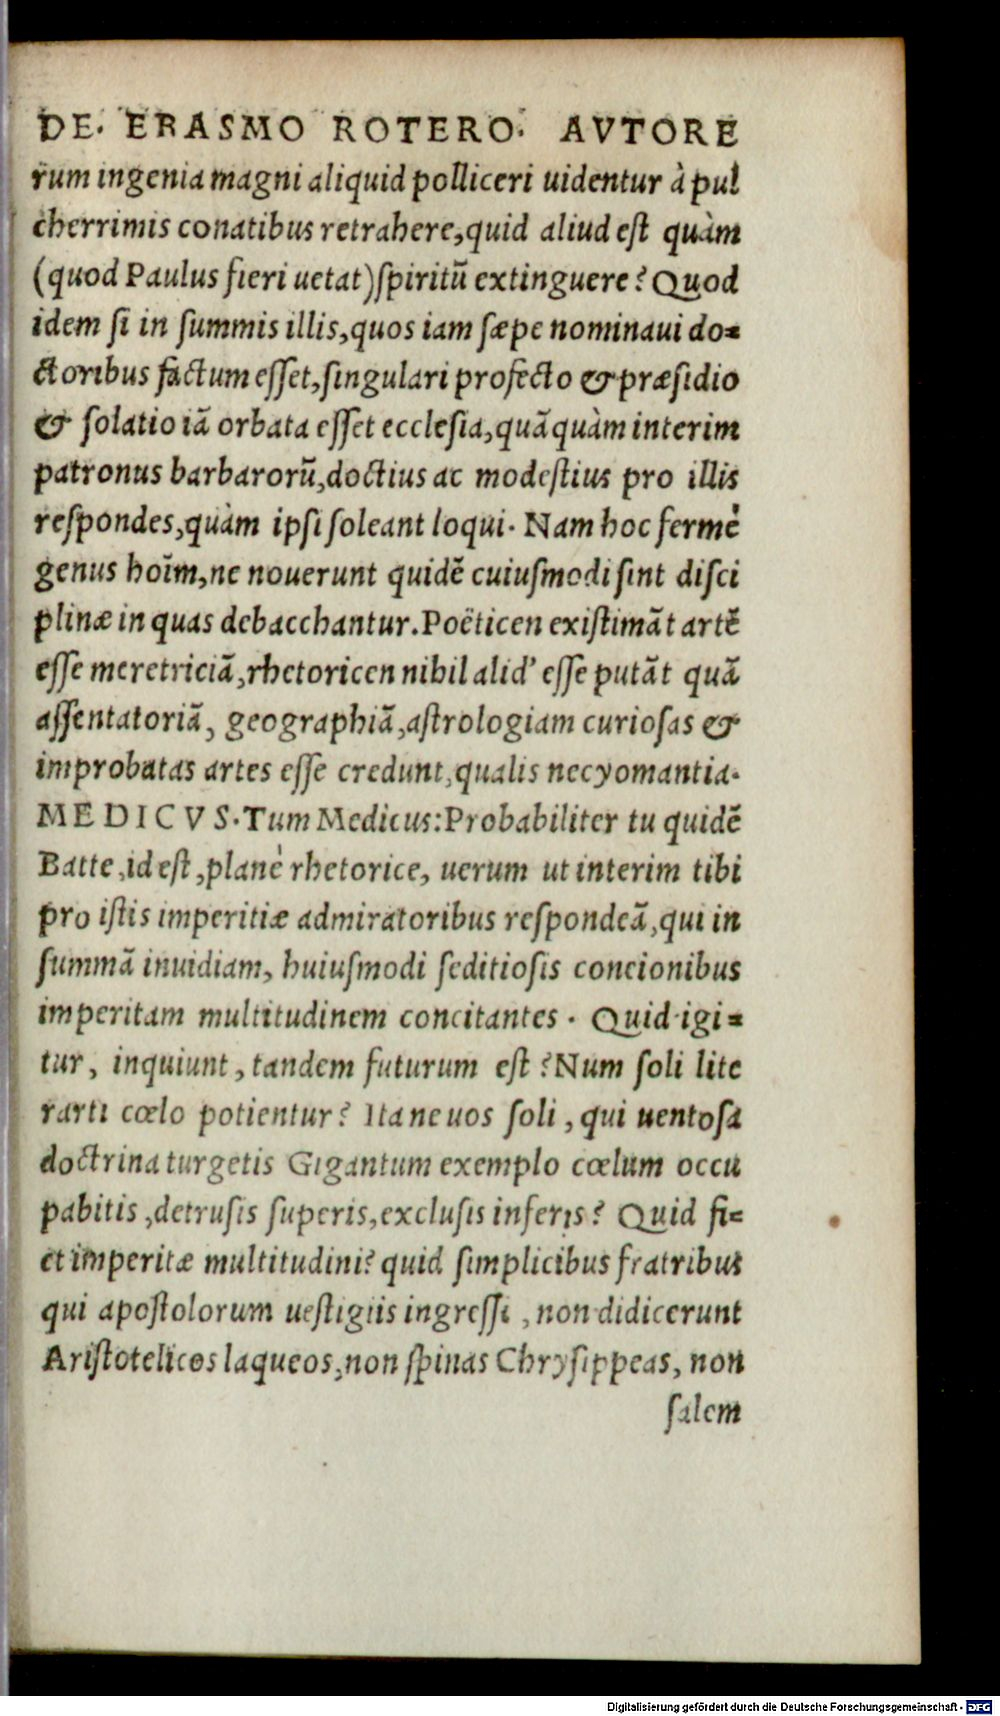 DE. ERASMO ROTERO. AVTORE
rum ingenia magni aliquid polliceri uidentur à pul
cherrimis conatibus retrahere, quid aliud est quàm
(quod Paulus fieri uetat) spiritũ extinguere? Quod
idem si in summis illis, quos iam sæpe nominaui do=
ctoribus factum esset, singulari profecto & præsidio
& solatio iã orbata esset ecclesia, quãquàm interim
patronus barbarorũ, doctius ac modestius pro illis
respondes, quàm ipsi soleant loqui. Nam hoc fermè
genus hoĩm, ne nouerunt quidẽ cuiusmodi sint disci
plinæ in quas debacchantur. Poëticen existimãt artẽ
esse meretriciã, rhetoricen nihil alid' esse putãt quã
assentatoriã, geographiã, astrologiam curiosas &
improbatas artes esse credunt, qualis necyomantia.
MEDICVS. Tum Medicus: Probabiliter tu quidẽ
Batte, id est, planè rhetorice, uerum ut interim tibi
pro istis imperitiæ admiratoribus respondeã, qui in
summã inuidiam, huiusmodi seditiosis concionibus
imperitam multitudinem concitantes. Quid igi=
tur, inquiunt, tandem futurum est? Num soli lite
rarti cœlo potientur? Itane uos soli, qui uentosa
doctrina turgetis Gigantum exemplo cœlum occu
pabitis, detrusis superis, exclusis inferis? Quid fi=
et imperitæ multitudini? quid simplicibus fratribus
qui apostolorum uestigiis ingressi, non didicerunt
Aristotelicos laqueos, non spinas Chrysippeas, non
salem
Digitalisierung gefördert durch die Deutsche Forschungsgemeinschaft - DFG